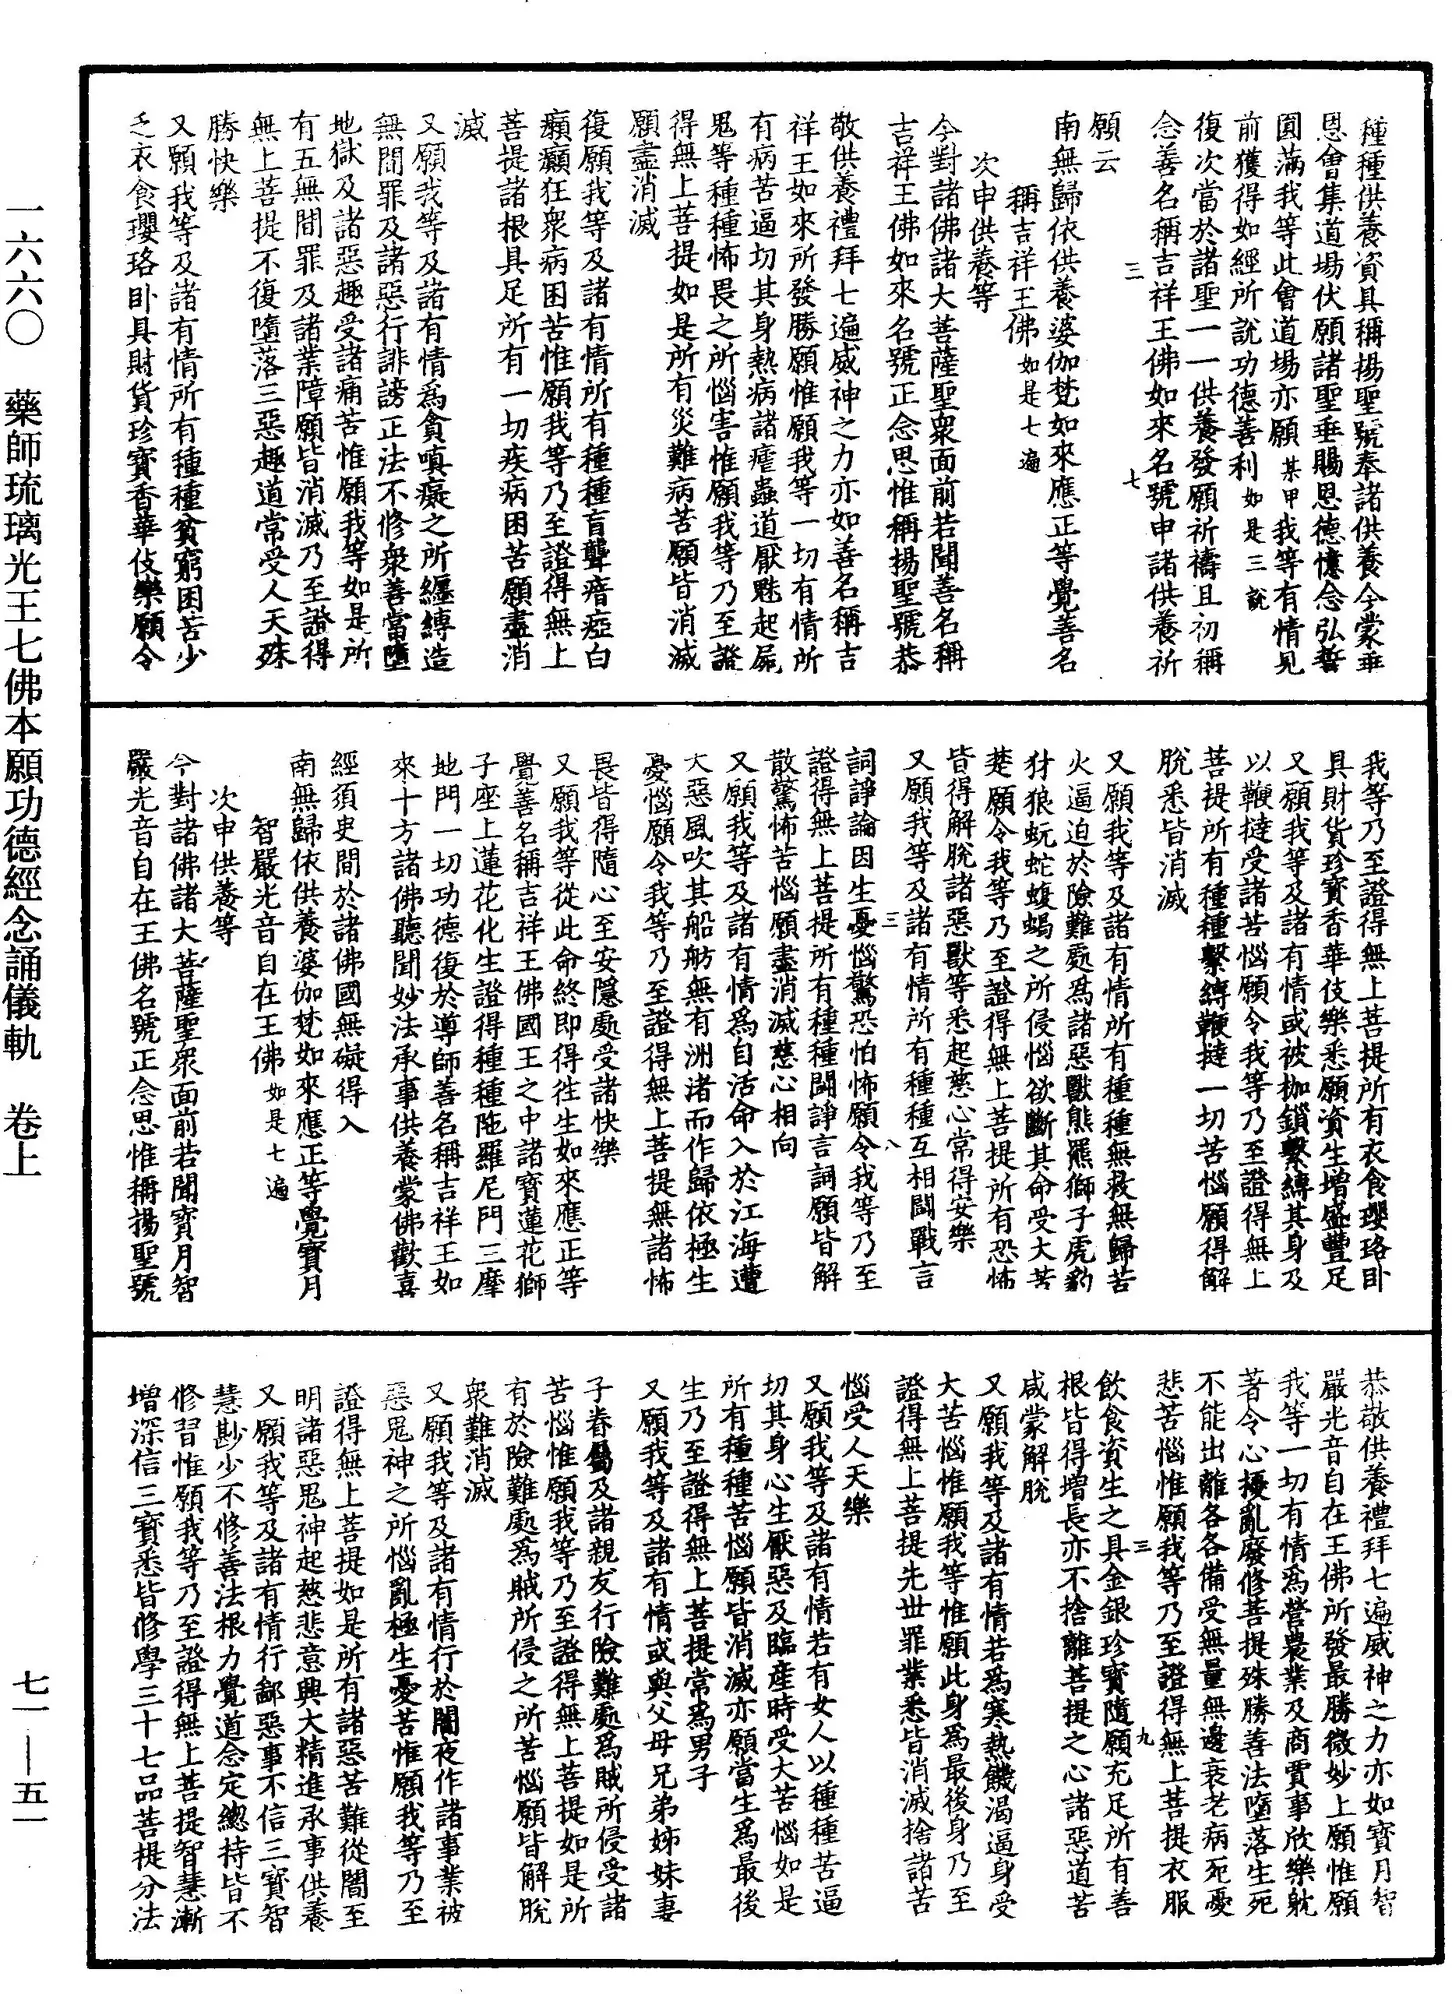 種種供養資具稱揚聖號奉諸供養今蒙垂
恩會集道場伏願諸聖垂賜恩德憶念弘誓
圓滿我等此會道場亦願某甲我等有情見
前獲得如經所說功德善利如是三說
復次當於諸聖一一供養發願祈禱且初稱
念善名稱吉祥王佛如來名號申諸供養祈
三 七
願云
南無歸依供養婆伽梵如來應正等覺善名
稱吉祥王佛如是七遍
次申供養等
今對諸佛諸大菩薩聖衆面前若聞善名稱
吉祥王佛如來名號正念思惟稱揚聖號恭
敬供養禮拜七遍威神之力亦如善名稱吉
祥王如來所發勝願惟願我等一切有情所
有病苦逼切其身熱病諸瘧蟲道厭魅起屍
鬼等種種怖畏之所惱害惟願我等乃至證
得無上菩提如是所有災難病苦願皆消滅
願盡消滅
復願我等及諸有情所有種種盲聾瘖瘂白
癩癲狂衆病困苦惟願我等乃至證得無上
菩提諸根具足所有一切疾病困苦願盡消
滅
又願我等及諸有情爲貪嗔癡之所纏縛造
無間罪及諸惡行誹謗正法不修衆善當墮
地獄及諸惡趣受諸痛苦惟願我等如是所
有五無間罪及諸業障願皆消滅乃至證得
無上菩提不復墮落三惡趣道常受人天殊
勝快樂
又願我等及諸有情所有種種貧窮困苦少
乏衣食瓔珞卧具財貨珍寶香華伎樂願令
我等乃至證得無上菩提所有衣食瓔珞卧
具財貨珍寶香華伎樂悉願資生增盛豐足
又願我等及諸有情或被枷鎖繫縛其身及
以鞭撻受諸苦惱願令我等乃至證得無上
菩提所有種種繫縛鞭撻一切苦惱願得解
脫悉皆消滅
又願我等及諸有情所有種種無救無歸苦
火逼迫於險難處爲諸惡獸熊羆獅子虎豹
犲狼蚖蛇蝮蝎之所侵惱欲斷其命受大苦
楚願令我等乃至證得無上菩提所有恐怖
皆得解脫諸惡獸等悉起慈心常得安樂
又願我等及諸有情所有種種互相鬪戰言
三 八
詞諍論因生憂惱驚恐怕怖願令我等乃至
證得無上菩提所有種種鬪諍言詞願皆解
散驚怖苦惱願盡消滅慈心相向
又願我等及諸有情爲自活命入於江海遭
大惡風吹其船舫無有洲渚而作歸依極生
憂惱願令我等乃至證得無上菩提無諸怖
畏皆得隨心至安隱處受諸快樂
又願我等從此命終即得徃生如來應正等
覺善名稱吉祥王佛國王之中諸寶蓮花獅
子座上蓮花化生證得種種陁羅尼門三摩
地門一切功德復於導師善名稱吉祥王如
來十方諸佛聽聞妙法承事供養蒙佛歡喜
經須臾間於諸佛國無礙得入
南無歸依供養婆伽梵如來應正等覺寶月
智嚴光音自在王佛如是七遍
次申供養等
今對諸佛諸大菩薩聖衆面前若聞寶月智
嚴光音自在王佛名號正念思惟稱揚聖號
恭敬供養禮拜七遍威神之力亦如寶月智
嚴光音自在王佛所發最勝微妙上願惟願
我等一切有情爲營農業及商賈事欣樂躭
著令心擾亂廢修菩提殊勝善法墮落生死
不能出離各各備受無量無邊衰老病死憂
悲苦惱惟願我等乃至證得無上菩提衣服
三 九
飲食資生之具金銀珍寶隨願充足所有善
根皆得增長亦不捨離菩提之心諸惡道苦
咸蒙解脫
又願我等及諸有情若爲寒熱饑渴逼身受
大苦惱惟願我等惟願此身爲最後身乃至
證得無上菩提先世罪業悉皆消滅捨諸苦
惱受人天樂
又願我等及諸有情若有女人以種種苦逼
切其身心生厭惡及臨產時受大苦惱如是
所有種種苦惱願皆消滅亦願當生爲最後
生乃至證得無上菩提常爲男子
又願我等及諸有情或與父母兄弟姊妹妻
子眷屬及諸親友行險難處爲賊所侵受諸
苦惱惟願我等乃至證得無上菩提如是所
有於險難處爲賊所侵之所苦惱願皆解脫
衆難消滅
又願我等及諸有情行於闇夜作諸事業被
惡鬼神之所惱亂極生憂苦惟願我等乃至
證得無上菩提如是所有諸惡苦難從闇至
明諸惡鬼神起慈悲意興大精進承事供養
又願我等及諸有情行鄙惡事不信三寶智
慧尠少不修善法根力覺道念定總持皆不
修習惟願我等乃至證得無上菩提智慧漸
增深信三寶悉皆修學三十七品菩提分法
一六六〇 藥師琉璃光王七佛本願功德經念誦儀軌 卷上
七一—五一